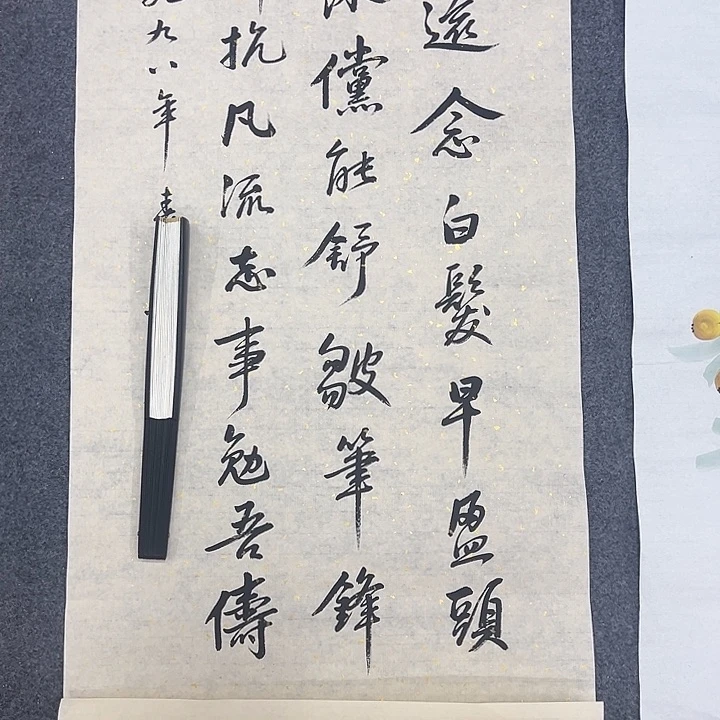 念白髮早盈頭
儻能舒皺筆鋒
抗凡流志事勉吾儔
九八年春